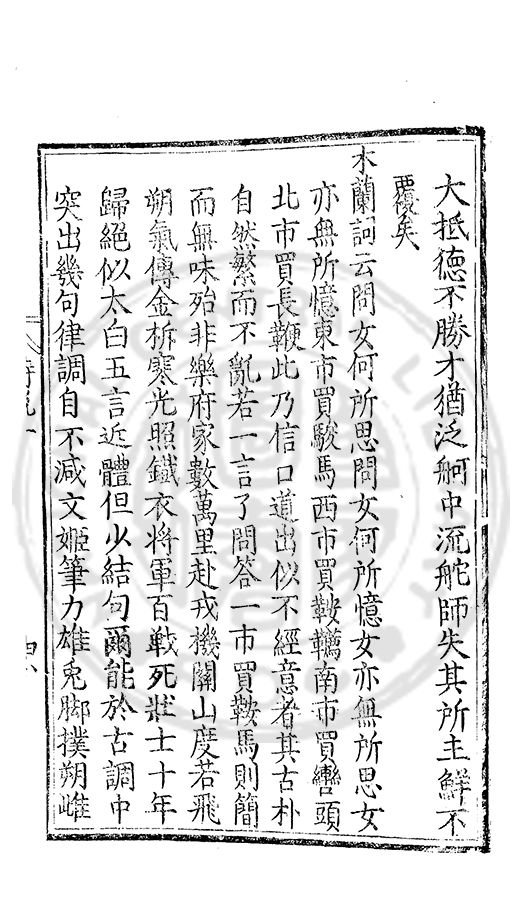 大抵德不勝才猶泛舸中流舵師失其所主鮮不
覆矣
木蘭詞云問女何所思問女何所憶女亦無所思女
亦無所憶東市買駿馬西市買鞍韉南市買轡頭
北市買長鞭此乃信口道出似不經意者其古朴
自然繁而不亂若一言了問答一市買鞍馬則簡
而無味殆非樂府家數萬里赴戎機關山度若飛
朔氣傳金柝寒光照鐵衣將軍百戰死壯士十年
歸絕似太白五言近體但少結句爾能於古調中
突出幾句律調自不減文姬筆力雄兔脚撲朔雌